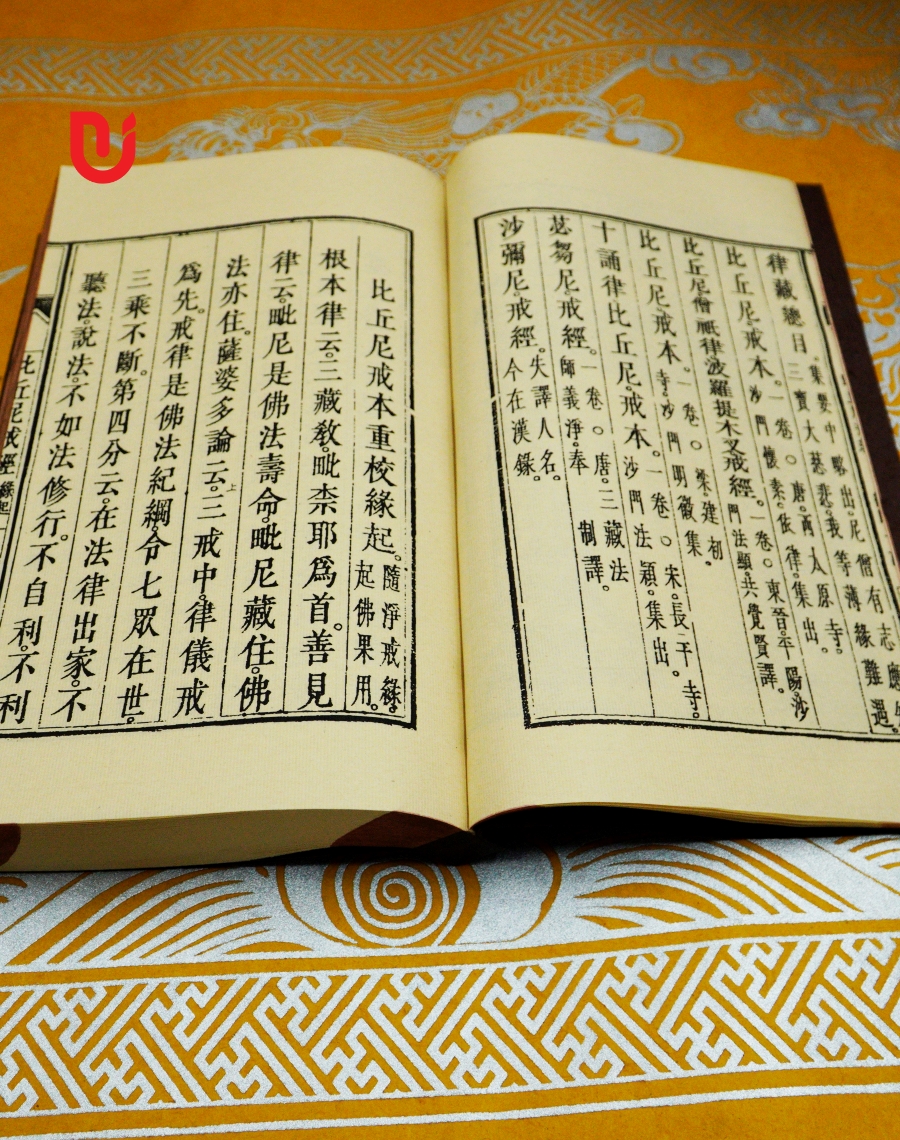 律藏總目。集要中略出。尼僧有志應
三寶大慈悲。我等薄緣難遇。
比丘尼戒本。一卷○唐。西太原寺。
沙門懷素。依律集出。
比丘尼僧祇律波羅提木叉戒經。一卷○東晉。平陽沙
門法顯共覺賢譯。
比丘尼戒本。一卷○梁。建初
寺。沙門明徽集。
十誦律比丘尼戒本。一卷○宋。長干寺。
沙門法穎。集出。
苾芻尼戒經。一卷○唐。三藏法
師義淨。奉制譯。
沙彌尼戒經。失譯人名。
今在漢錄。
比丘尼戒本重校緣起。隨淨戒緣。
起佛果用。
根本律云。三藏教。毗柰耶為首。善見
律云。毗尼是佛法壽命。毗尼藏住。佛
法亦住。薩婆多論云。三戒中。律儀戒
為先。戒律是佛法紀綱。令七眾在世。
三乘不斷。第四分云。在法律出家。不
聽法說法。不如法修行。不自利。不利
比丘尼戒經緣起